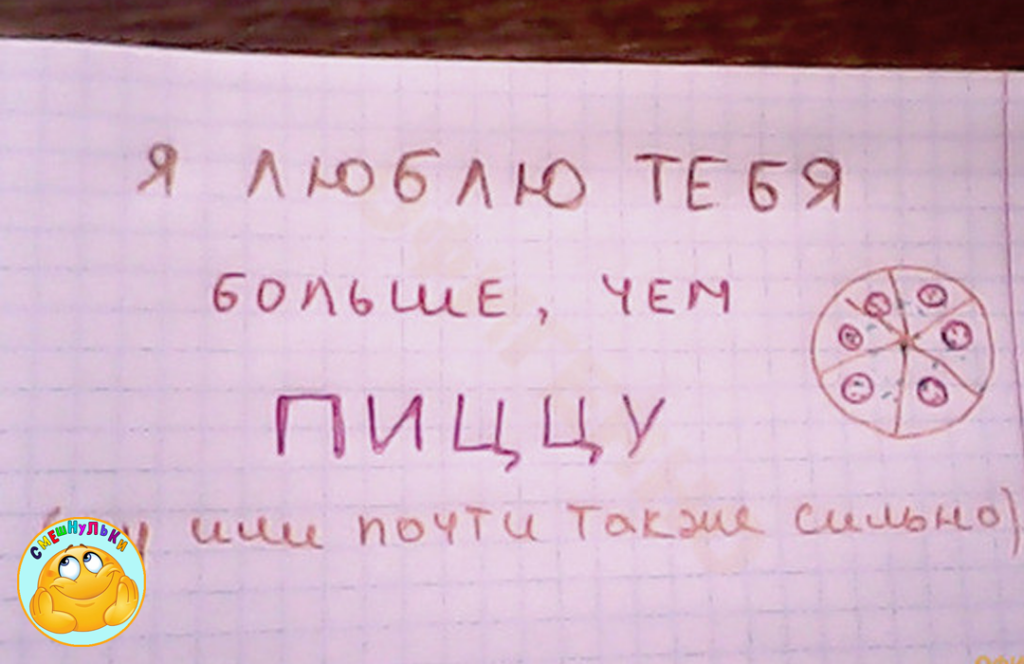 Я ЛЮБЛЮ ТЕБЯ
БОЛЬШЕ, ЧЕМ
ПИЦЦУ
или почти также сильно)
СМЕШНУЛЬКИ